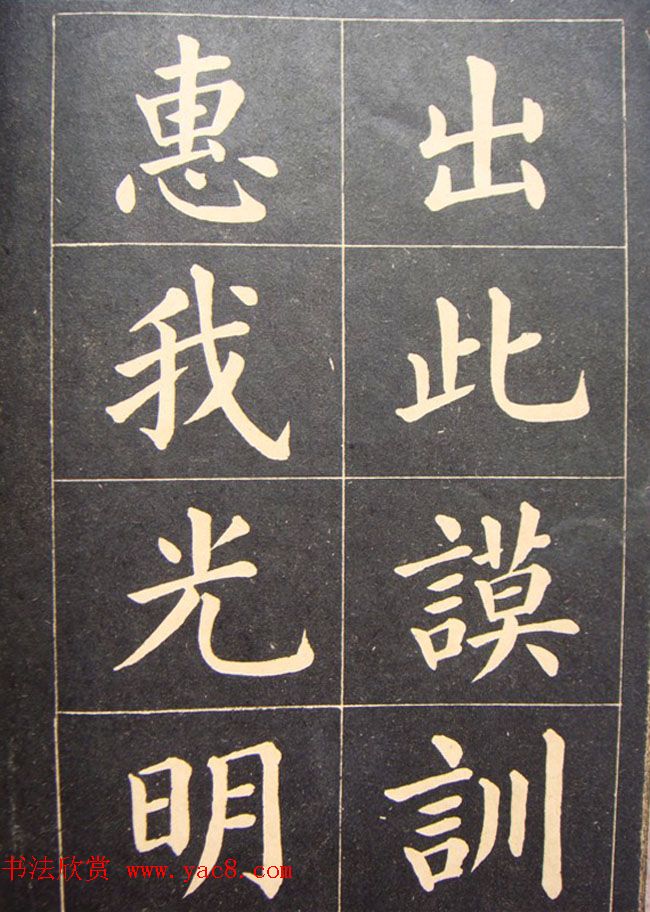 出此謨訓
惠我光明
书法欣赏 www.yac8.com